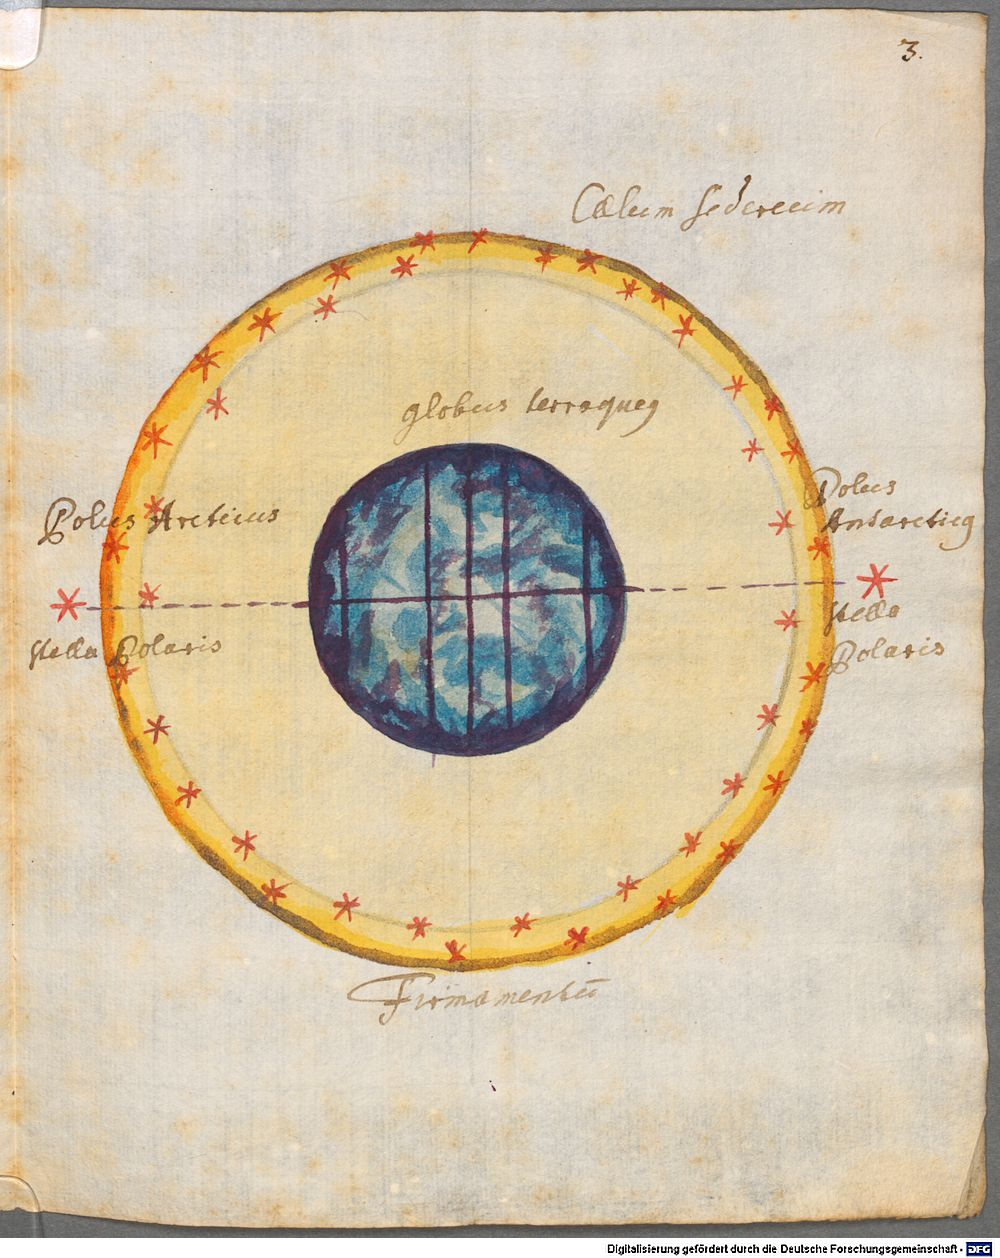 3.
Cælum sidereum
globus terraqueꝰ
Polus Arcticus
Polus
Antarcticꝰ
stella Polaris
stella
Polaris
Firmamentū
Digitalisierung gefördert durch die Deutsche Forschungsgemeinschaft - DFG